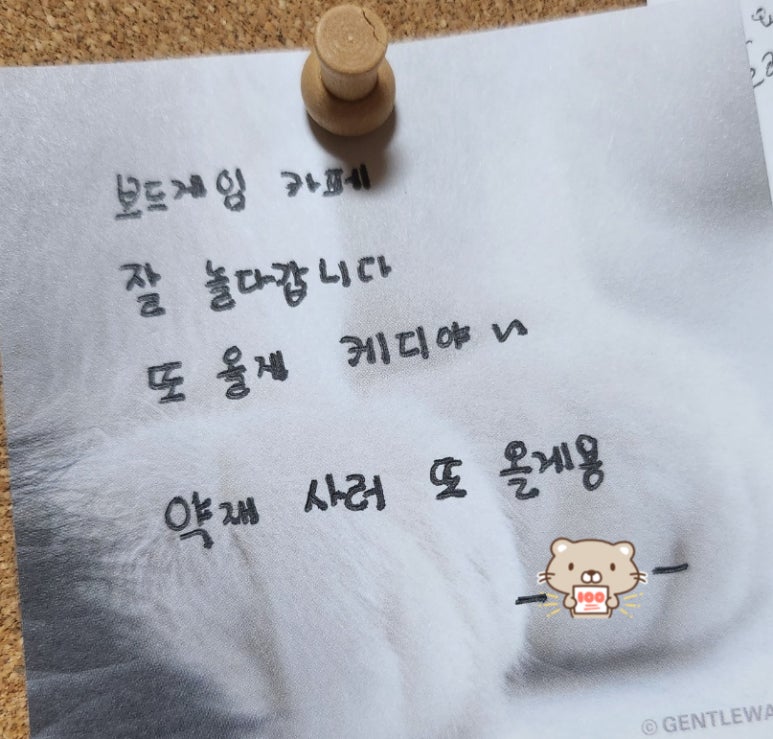 보드게임 카페
잘 놀다갑니다
또 올게 케디야~
약재 사러 또 올게용
- -
100
© GENTLEWA